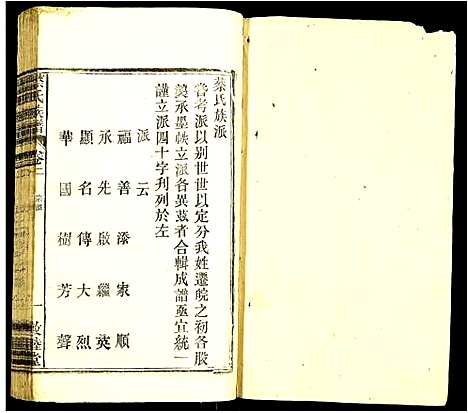 蔡氏族派
嘗考派以別世世以定分我姓遷皖之初各股
奠承墨帙立派各異茲者合輯成譜亟宜統一
謹立派四十字刋列於左
派云
福善添家順
承先啟繼英
顯名傳大烈
華國樹芳聲
蔡氏族譜
卷二
一